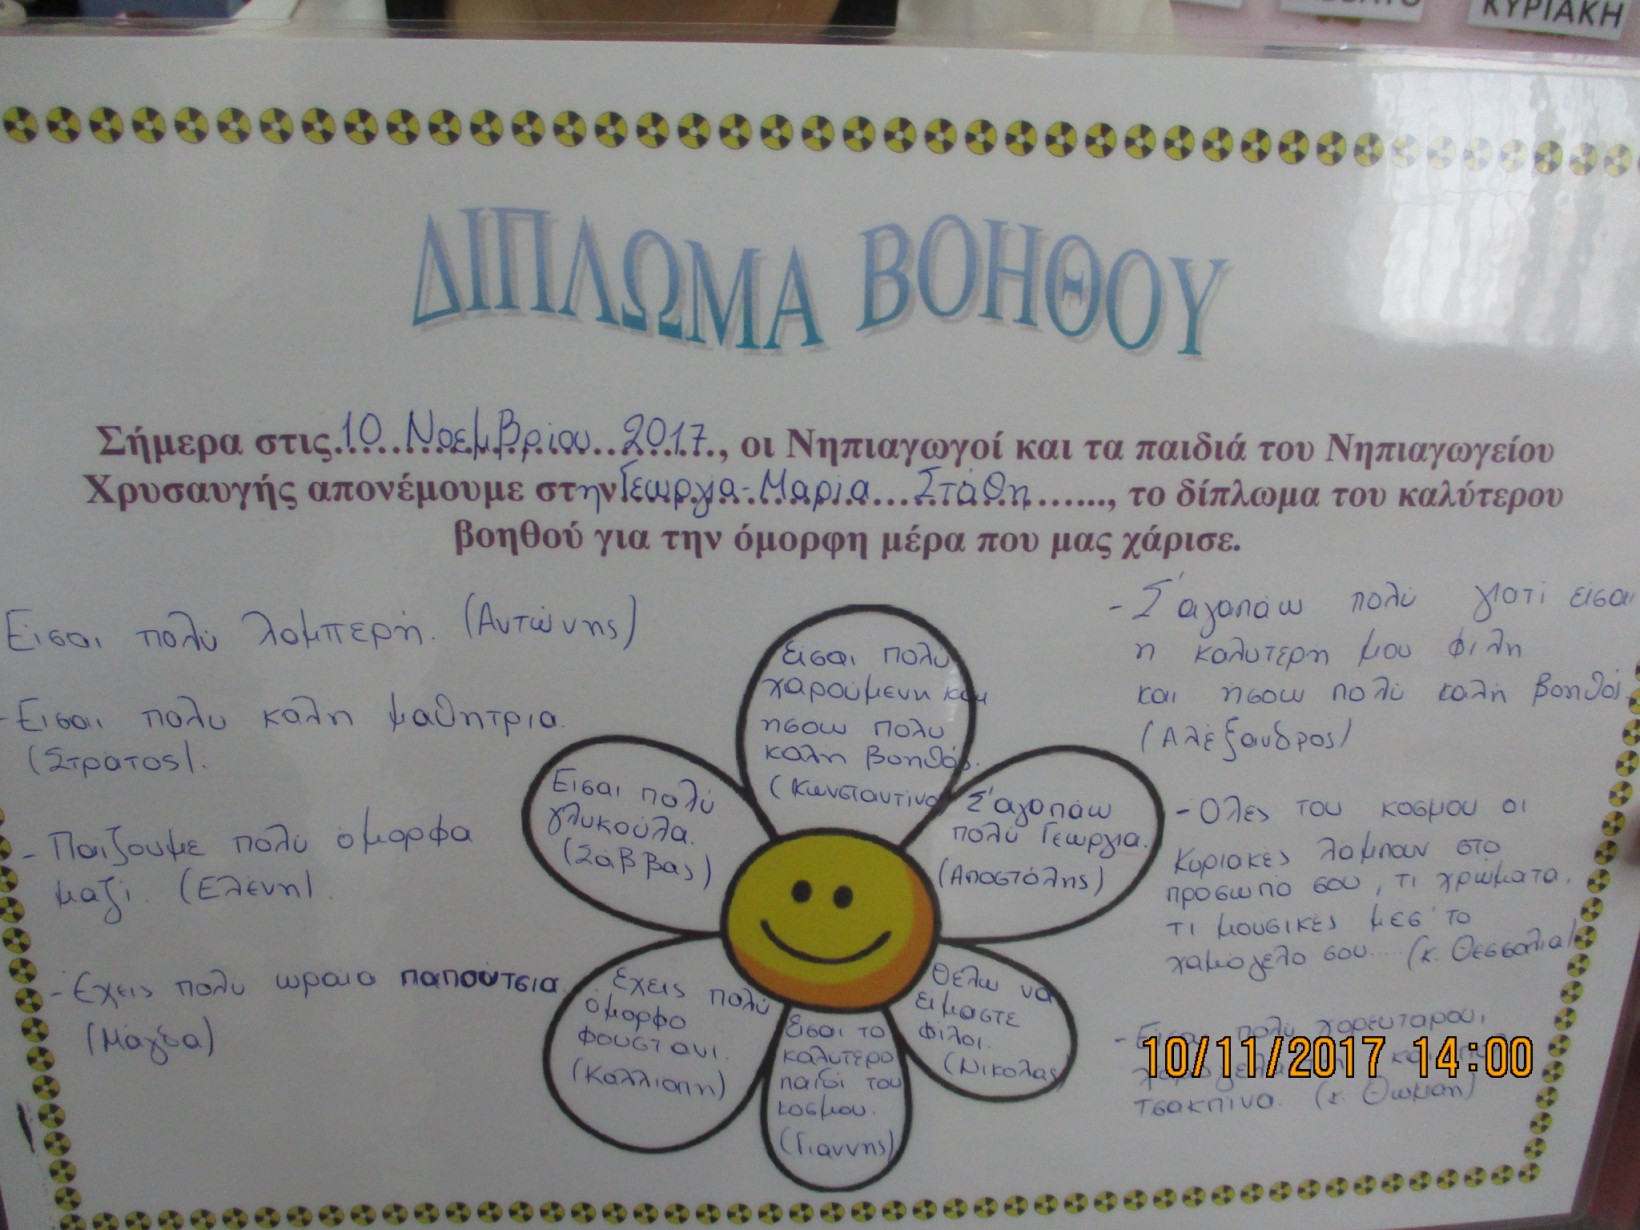 ΚΥΡΙΑΚΗ
ΔΙΠΛΩΜΑ ΒΟΗΘΟΥ
Σήμερα στις 10 Νοεμβρίου 2017, οι Νηπιαγωγοί και τα παιδιά του Νηπιαγωγείου
Χρυσαυγής απονέμουμε στην Γεωργία-Μαρία Στάθη, το δίπλωμα του καλύτερου
βοηθού για την όμορφη μέρα που μας χάρισε.
Είσαι πολύ λαμπερή. (Αντώνης)
-Είσαι πολύ καλή μαθήτρια.
(Στράτος).
- Παίζουμε πολύ όμορφα
μαζί. (Ελένη).
- Έχεις πολύ ωραία παπούτσια.
(Μάγδα)
Είσαι πολύ
χαρούμενη και
ήσουν πολύ
καλή βοηθός.
(Κωνσταντίνο
Είσαι πολύ
γλυκούλα.
(Σάββας)
Σ'αγαπάω
πολύ Γεωργία.
(Αποστόλης)
Έχεις πολύ
όμορφο
φουστάνι.
(Καλλιόπη)
Είσαι το
καλύτερο
παιδί του
κόσμου.
(Γιάννης)
Θέλω να
είμαστε
φίλοι.
(Νικόλας)
- Σ'αγαπάω πολύ γιατί είσαι
η καλύτερη μου φίλη
και ήσουν πολύ καλή βοηθός.
(Αλέξανδρος)
- Όλες του κόσμου οι
Κυριακές λάμπουν στο
πρόσωπό σου, τι χρώματα,
τι μουσικές μεσ' το
χαμόγελό σου..... (κ. Θεσσαλία)
- Είσαι πολύ χορευταρού,
και
τσαχπίνα. (κ. Θωμαή)
10/11/2017 14:00